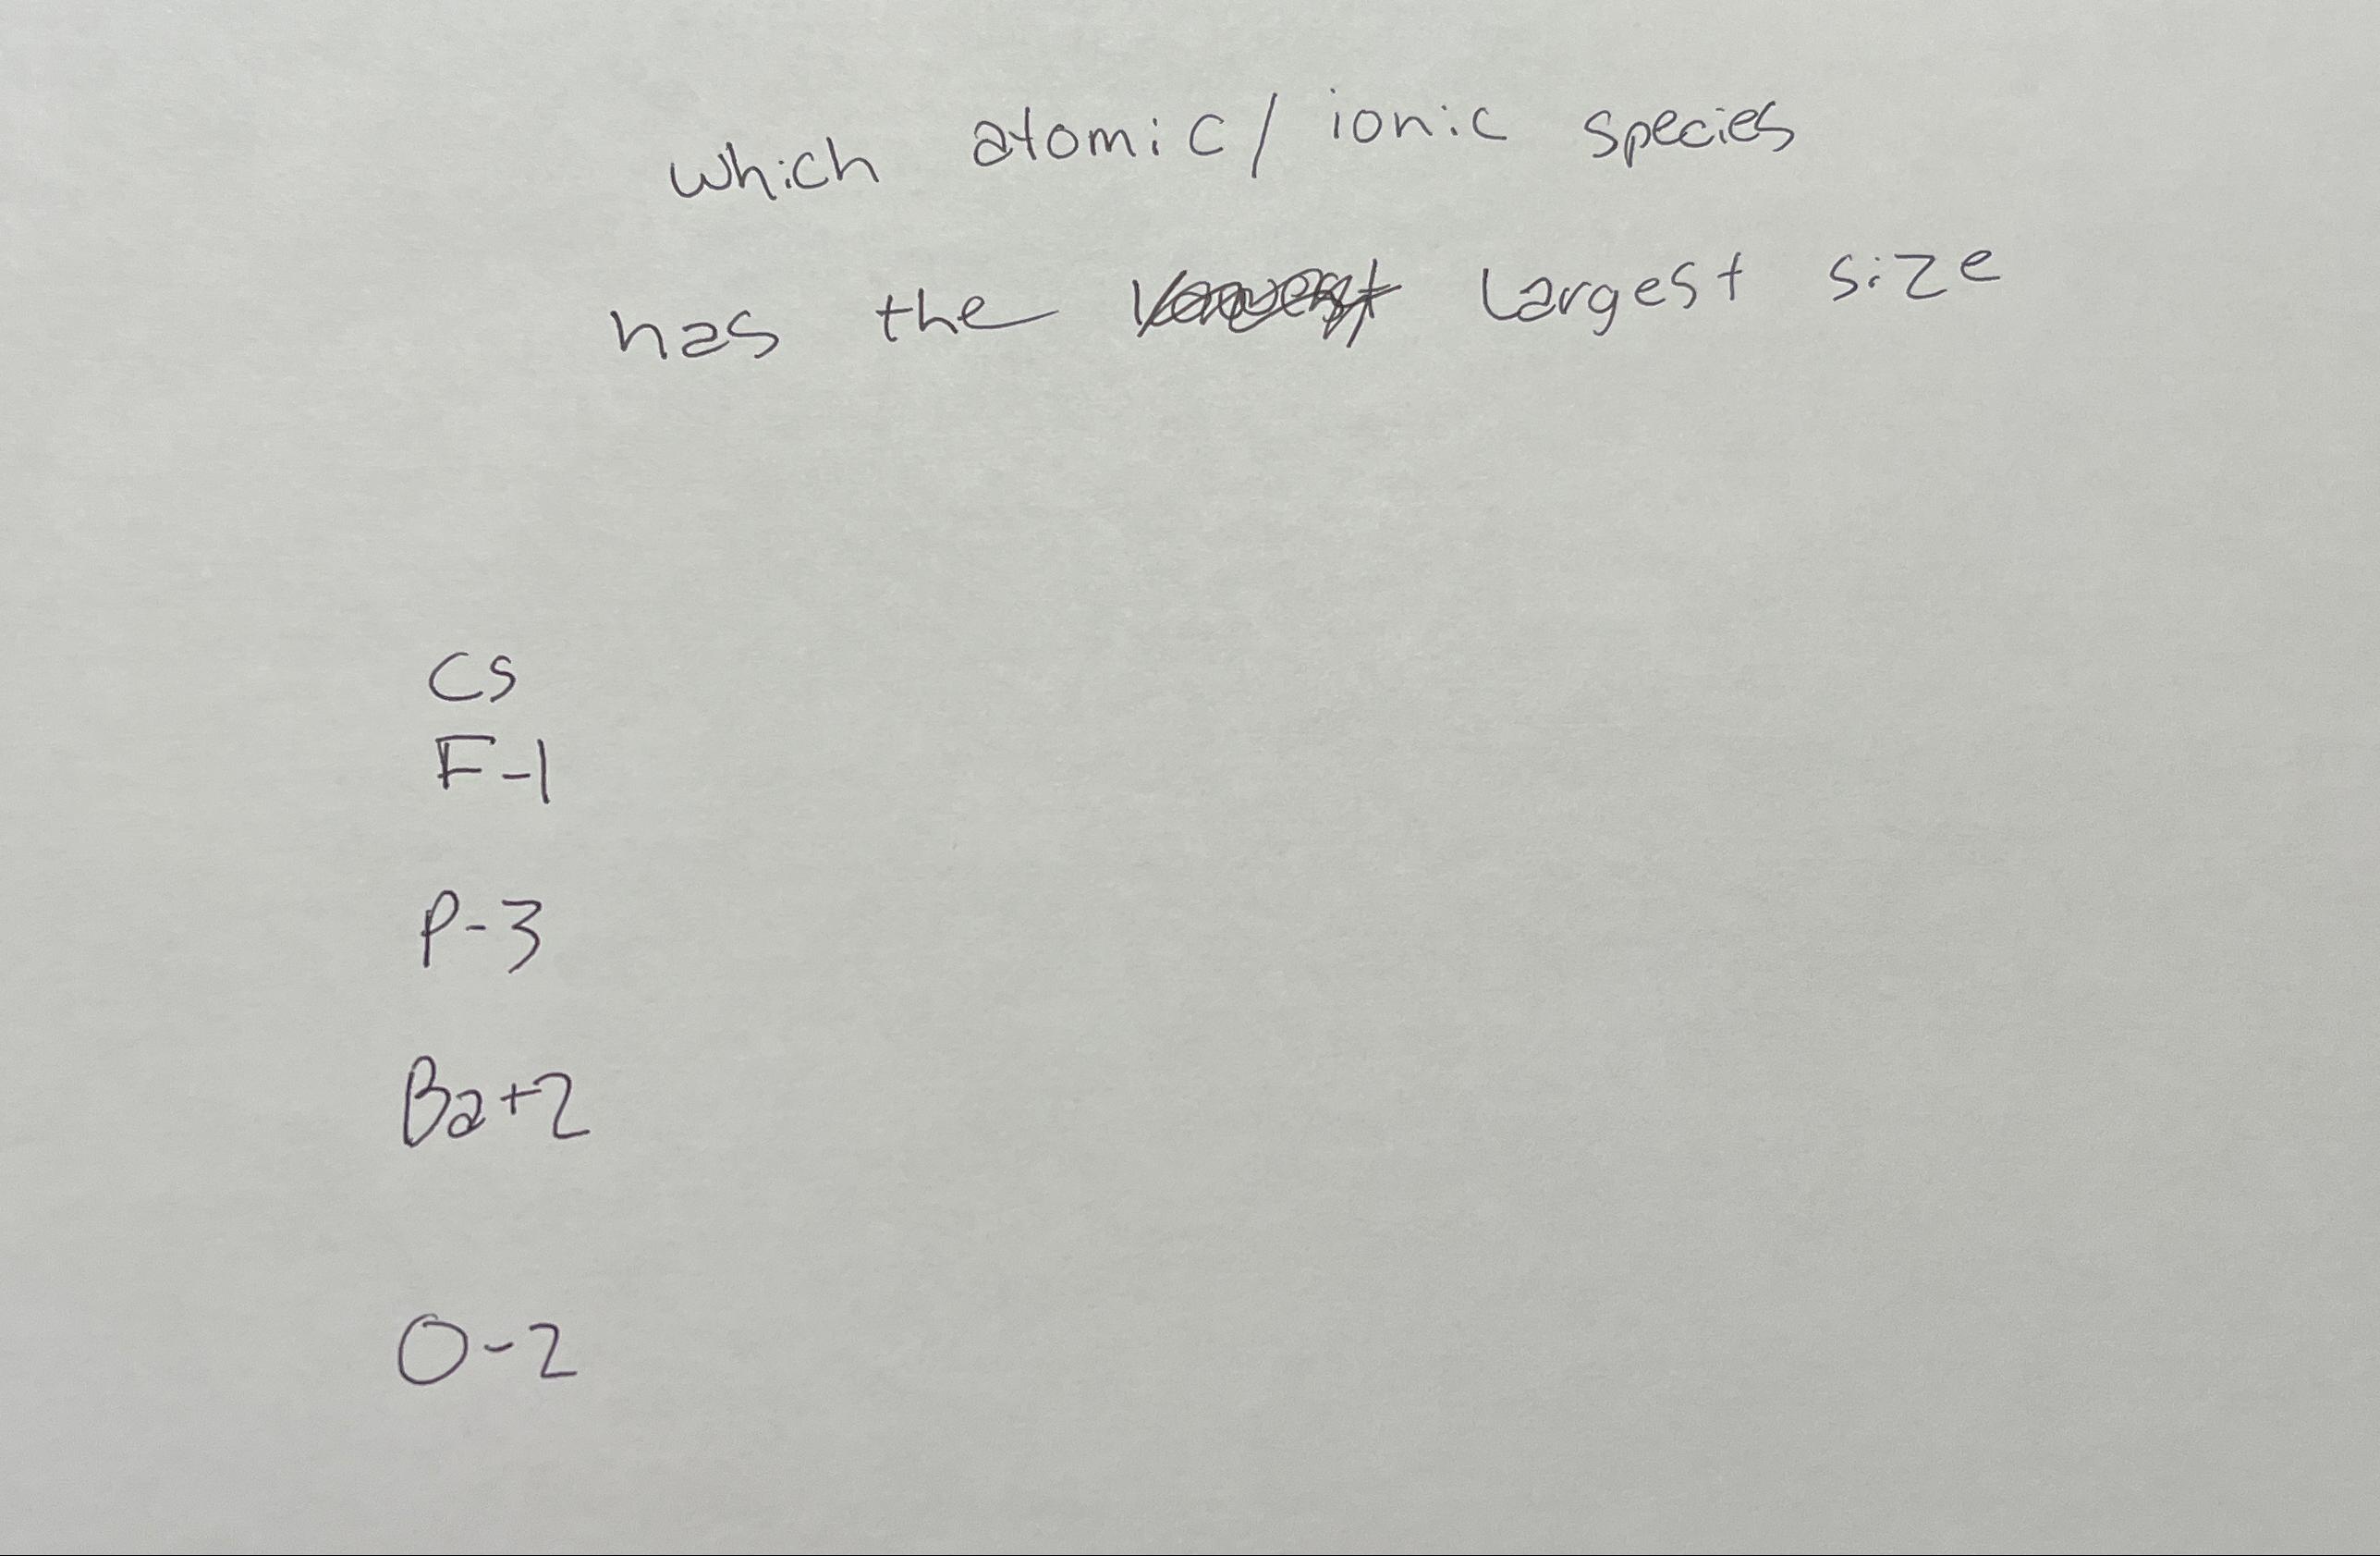 which atomic/ionic species
has the largest size
Cs
F-1
P-3
Ba+2
O-2